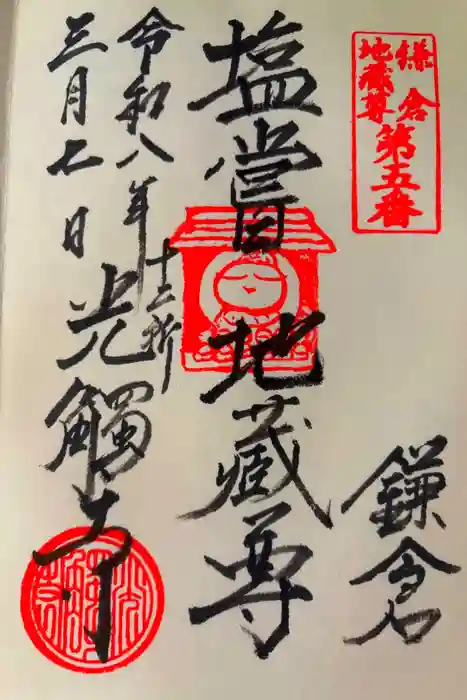 鎌倉
地蔵尊
第五番
鎌倉
塩嘗地蔵尊
令和八年
三月七日
十二所
光觸寺